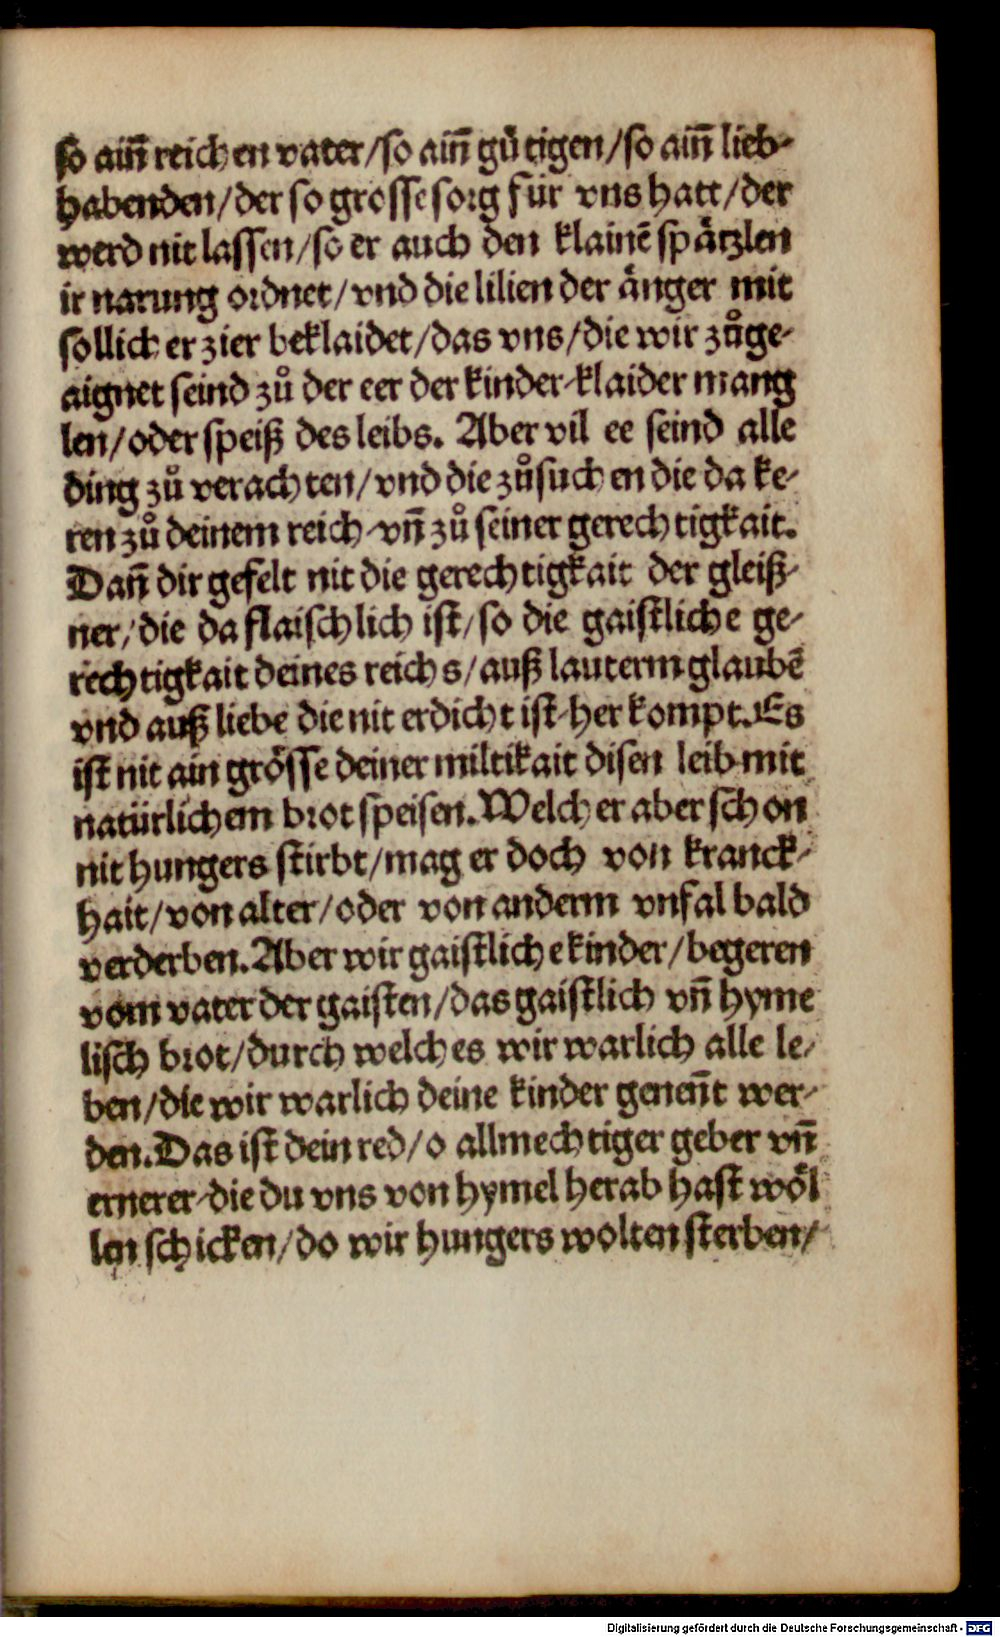 so ain̄ reichen vater/so ain̄ gütigen/so ain̄ lieb-
habenden/der so grosse sorg für vns hatt/der
werd nit lassen/so er auch den klainē spätzlen
ir narung ordnet/vnd die lilien der änger mit
sollicher zier beklaidet/das vns/die wir zůge-
aignet seind zů der eer der kinder/klaider mang
len/oder speiß des leibs. Aber vil ee seind alle
ding zů verachten/vnd die zůsuchen die da ke-
ren zů deinem reich/vn̄ zů seiner gerechtigkait.
Dan̄ dir gefelt nit die gerechtigkait der gleiß-
ner/die da flaischlich ist/so die gaistliche ge-
rechtigkait deines reichs/auß lauterm glaubē
vnd auß liebe die nit erdicht ist/her kompt. Es
ist nit ain grösse deiner miltikait disen leib mit
natürlichem brot speisen. Welcher aber schon
nit hungers stirbt/mag er doch von kranck-
hait/von alter/oder von anderm vnfal bald
verderben. Aber wir gaistliche kinder/begeren
vom vater der gaisten/das gaistlich vn̄ hyme
lisch brot/durch welches wir warlich alle le-
ben/die wir warlich deine kinder genen̄t wer-
den. Das ist dein red/o allmechtiger geber vn̄
ernerer/die du vns von hymel herab hast wöl
len schicken/do wir hungers wolten sterben/
Digitalisierung gefördert durch die Deutsche Forschungsgemeinschaft - DFG